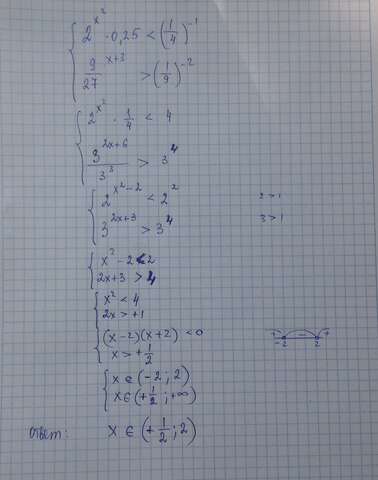 { 2^(x^2) · 0,25 < (1/4)^(-1)
9^(x+3)/27 > (1/9)^(-2)
{ 2^(x^2) · 1/4 < 4
3^(2x+6)/3^3 > 3^4
{ 2^(x^2-2) < 2^2 2 > 1
3^(2x+3) > 3^4 3 > 1
{ x^2 - 2 < 2
2x+3 > 4
{ x^2 < 4
2x > +1
(x-2)(x+2) < 0 + - +
x > +1/2 -2 2
{ x ∈ (-2; 2)
x ∈ (+1/2; +∞)
Ответ: x ∈ (+1/2; 2)